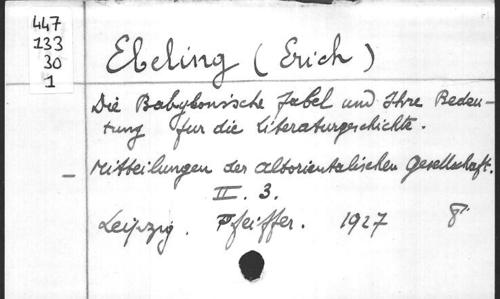 447
133
30
1
Ebeling (Erich)
Die Babylonische Fabel und Ihre Bedeu-
tung fur die Literaturgeschichte.
Mitteilungen der altorientalischen Gesellschaft.
II. 3.
Leipzig. Pfeiffer. 1927 8°